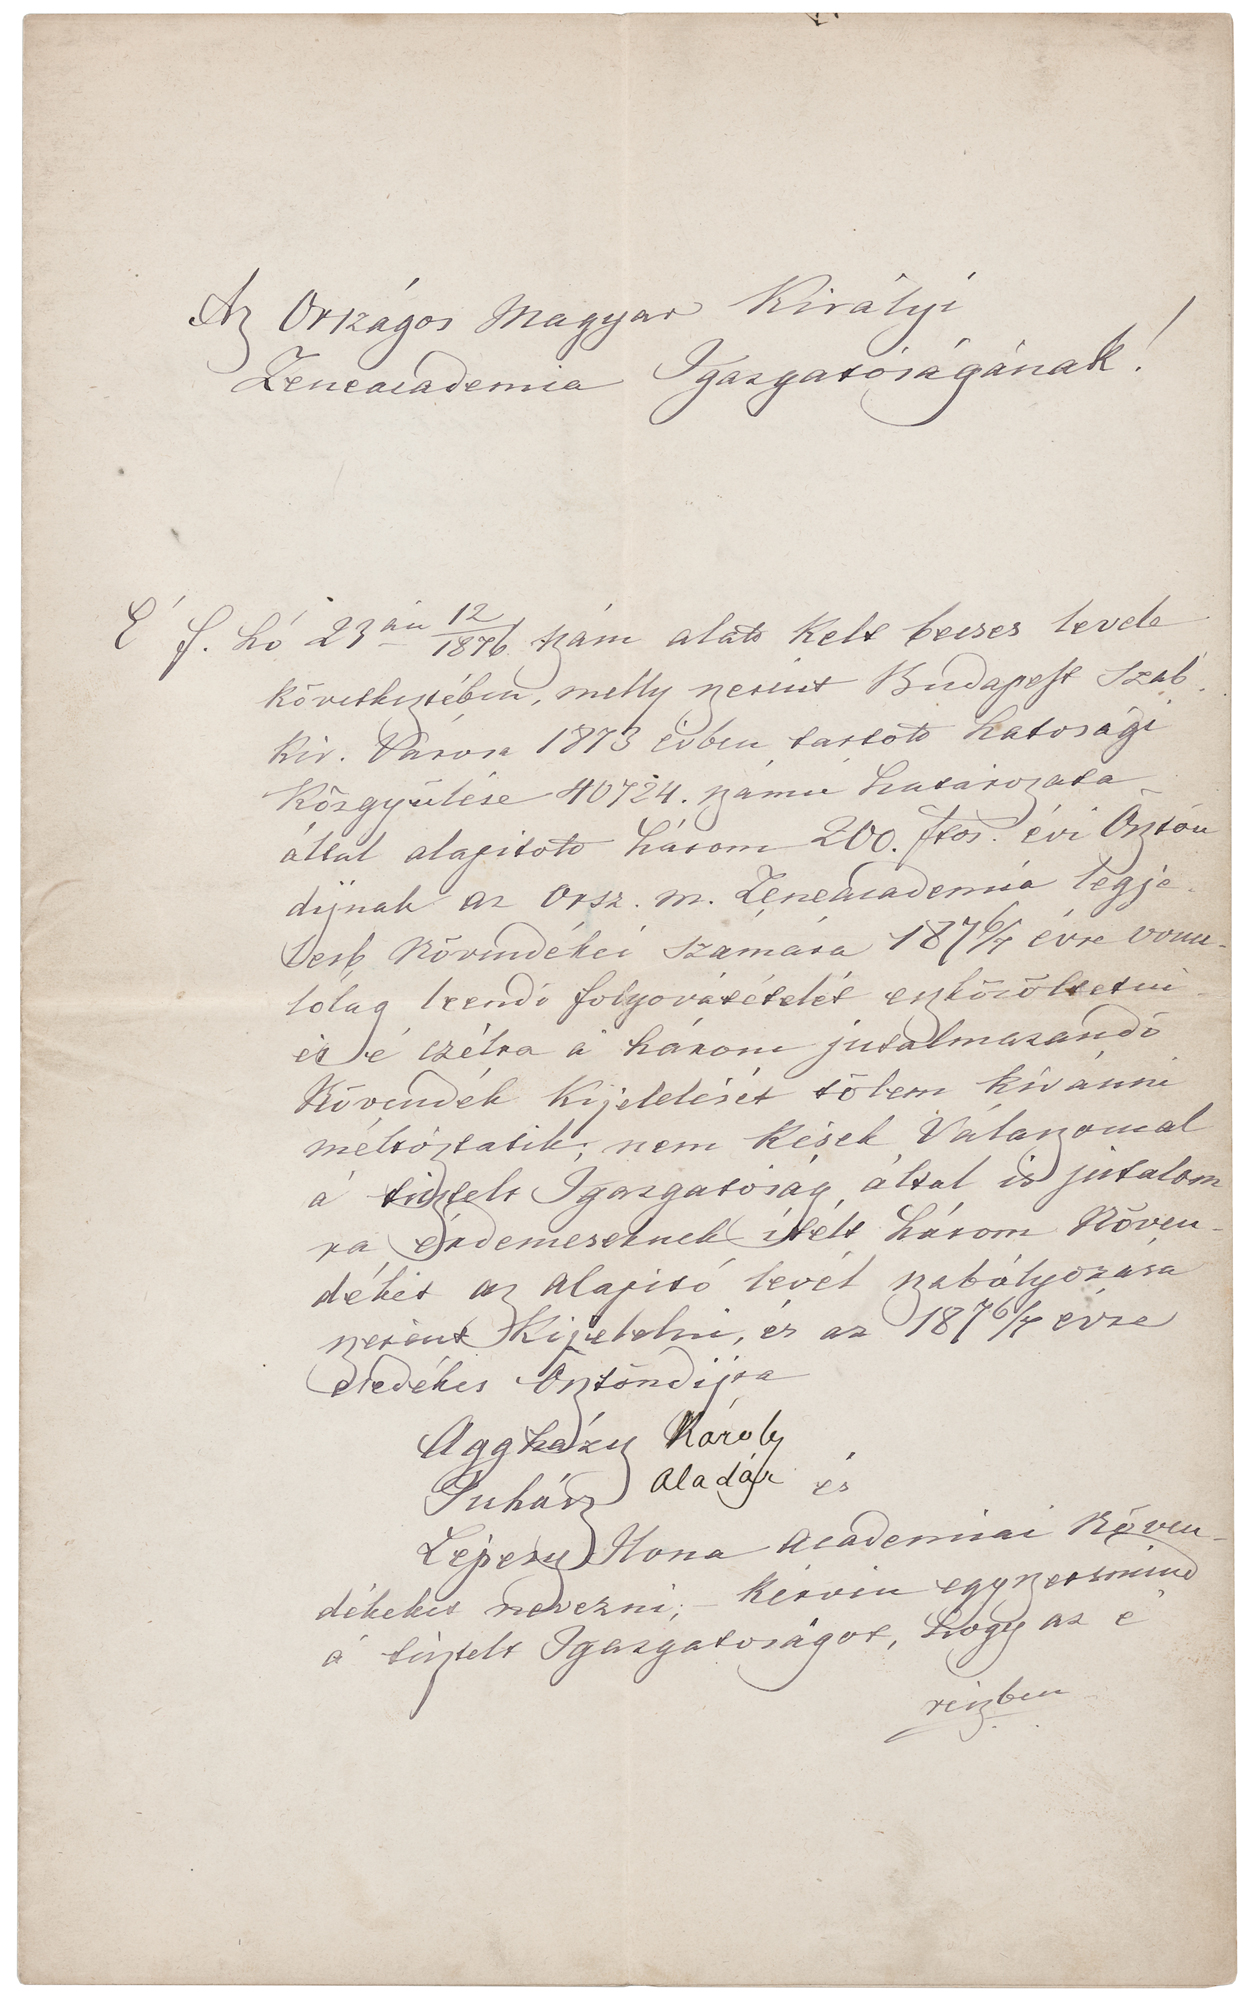 Az Országos Magyar Királyi
Zeneacademia Igazgatóságának!
É f. hó 23án 12/1876 szám alatt kelt becses levele
következtében, melly szerint Budapest Szab.
Kir. Városa 1873 évben tartott hatosági
Közgyülése 40724. számú határozata
által alapitott három 200. ftos. éviÖsztön
dijnak az Orsz. m. Zeneacademia legje-
lesb Növendékei számára 1876/7 évre vonu-
lólag leendő folyóvátételét eszközöltetni
és é czélra á három jutalmazandó
Növendék kijelelését tőlem kivánni
méltóztatik; nem kések Válaszomal
á tisztelt Igazgatóság által is jutalom
ra érdemeseknek itélt három Növen-
dékét az alapító levél szabályozása
szerint kijelelni, és az 1876/7 évre
esedékes Ösztöndijra
Aggházy Károly
Juhász Aladár és
Lépesy Ilona academiai Növen-
dékeket nevezni; – kérvén egyszersmind
á tisztelt Igazgatóságot, hogy az é
részben